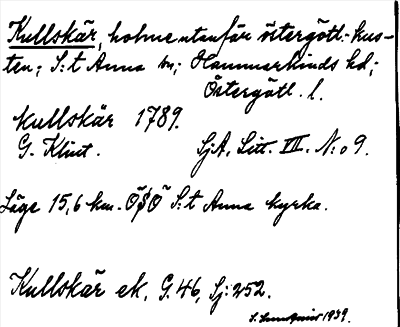 Kullskär, holme utanför östergötl.-kus-
ten; S:t Anna sn; Hammarkinds hd;
Östergötl. l.
Kullskär 1789.
G. Klint. SjA, Litt. III. N:o 9.
Läge 15,6 km. ÖSÖ S:t Anna kyrka.
Kullskär ek, G. 46, Sj: 252.
1939.